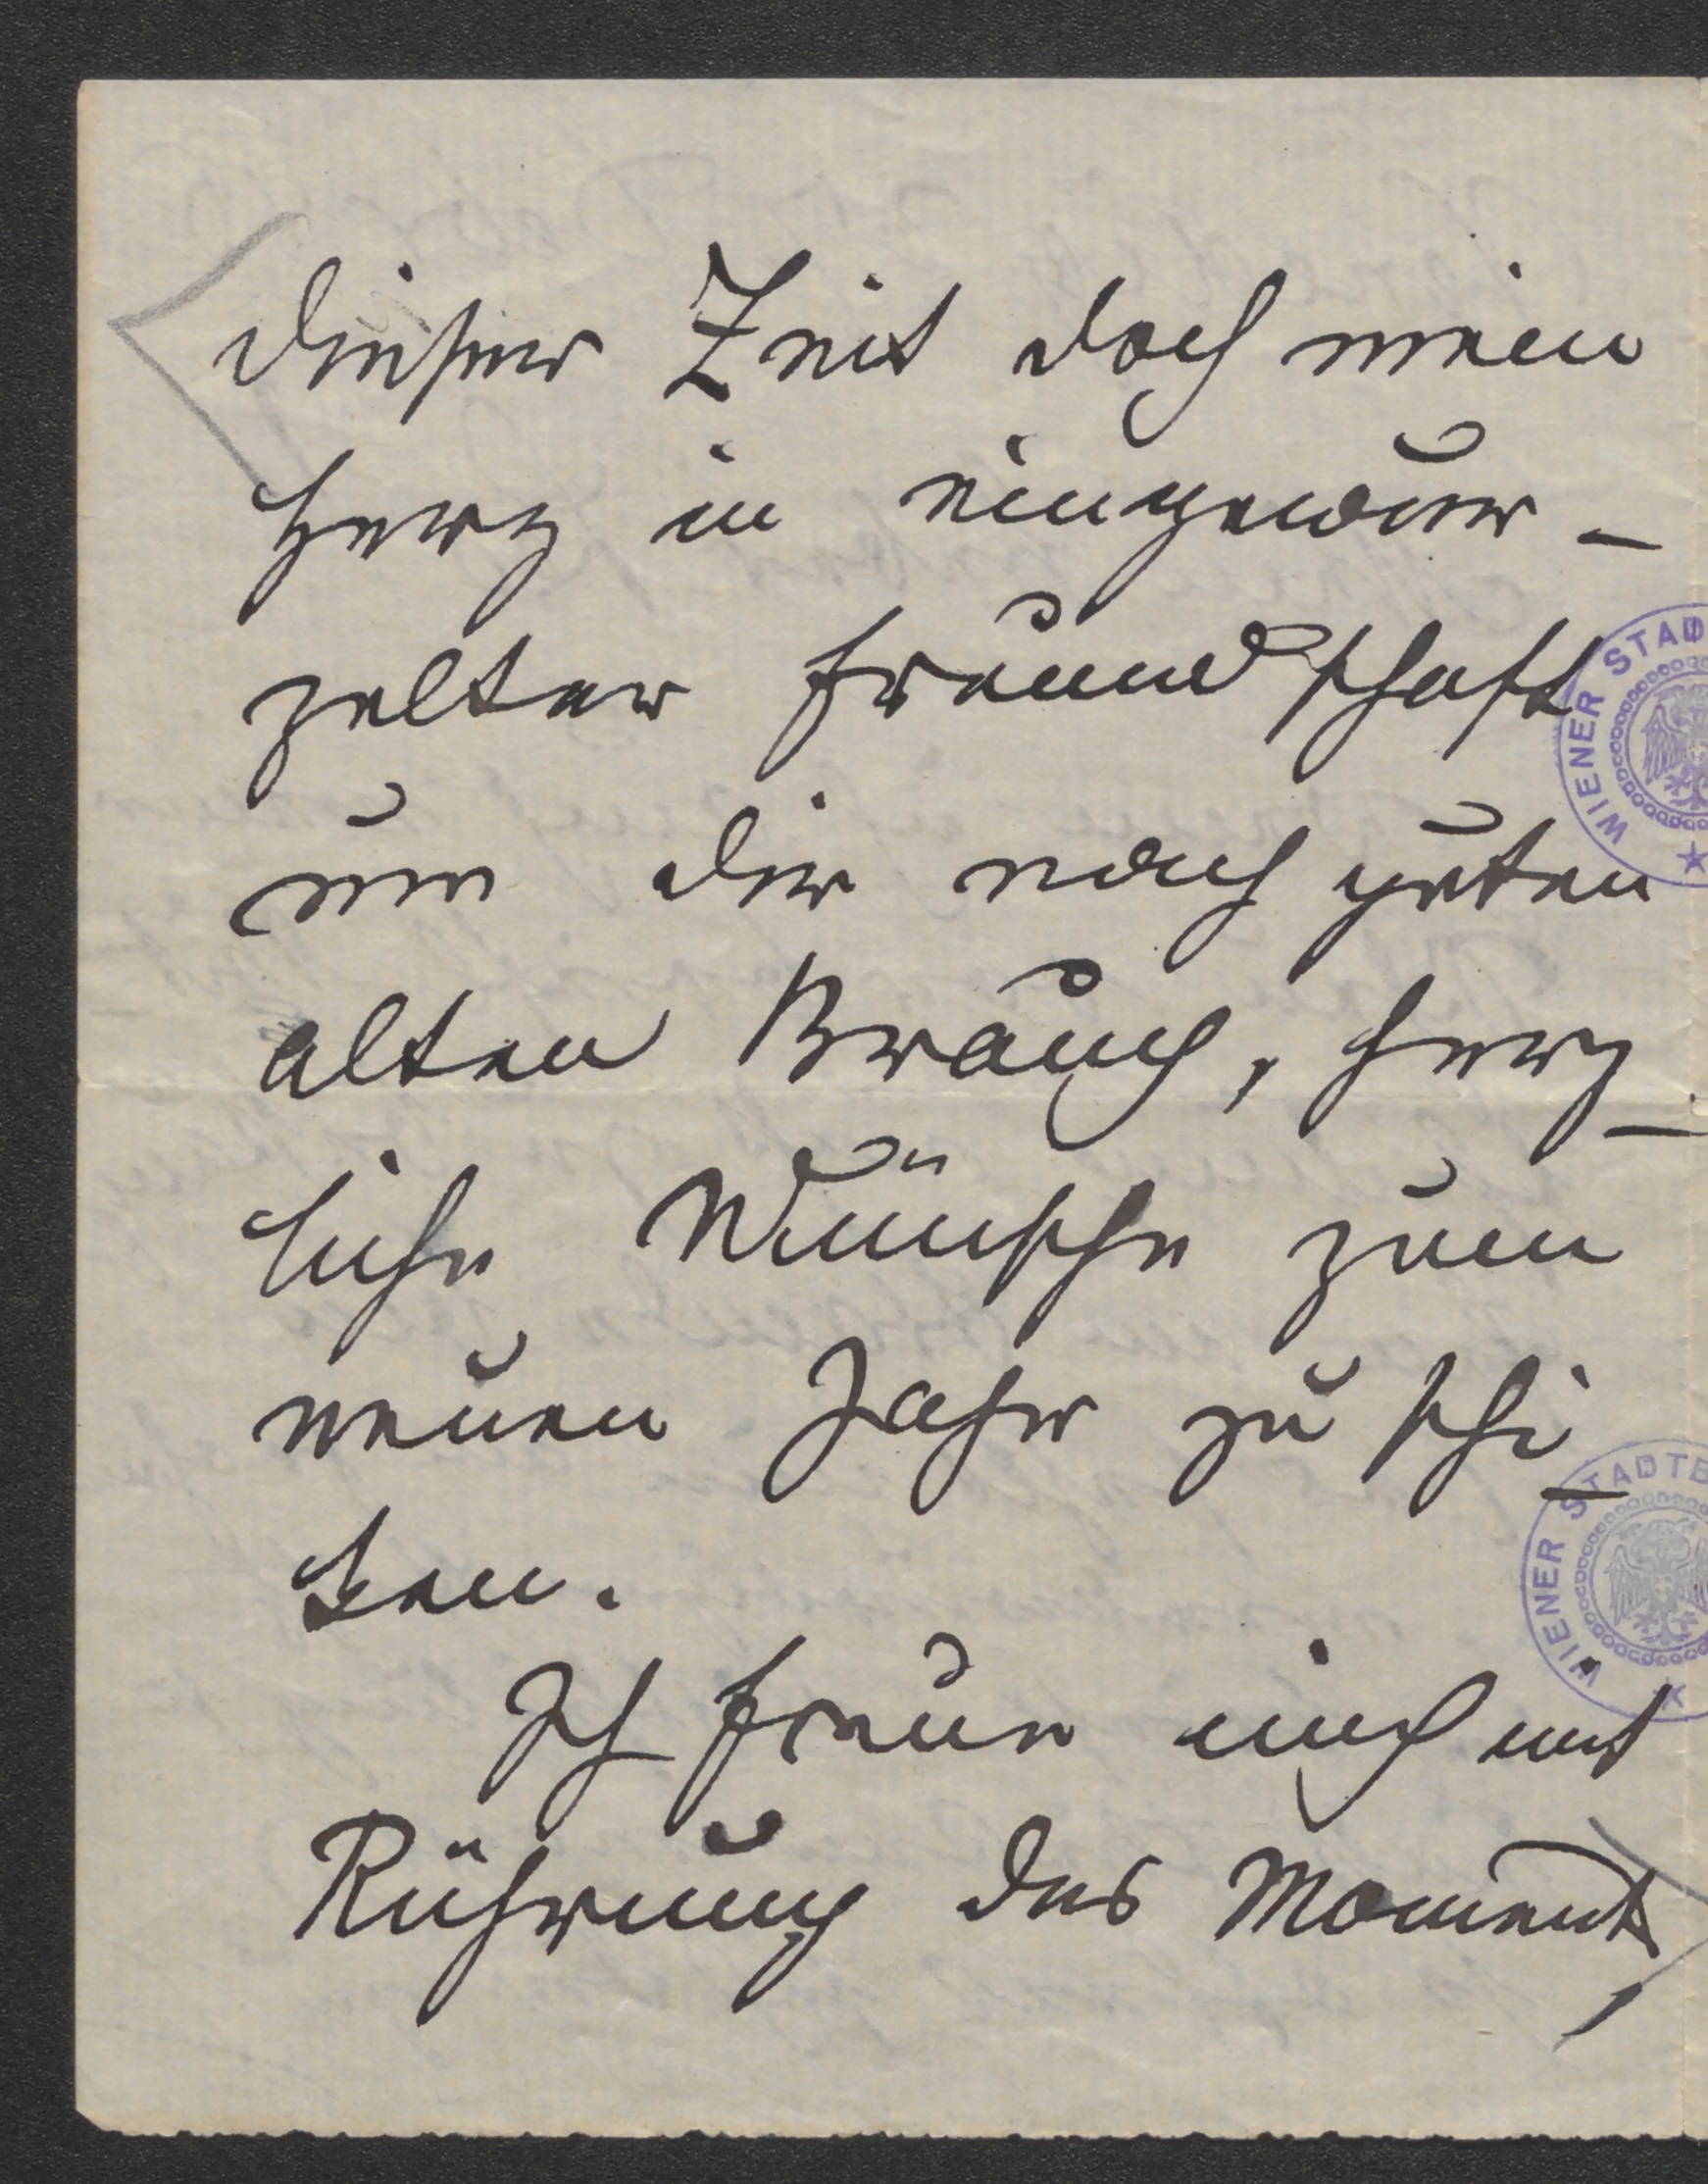 dieser Zeit doch mein
Herz in eingewur-
zelter Freundschaft
um dir nach guten
alten Brauch, herz-
liche Wünsche zum
neuen Jahr zu schi-
ken.
Ich freue mich mit
Rührung des Moments,
WIENER STAD
WIENER STADTB